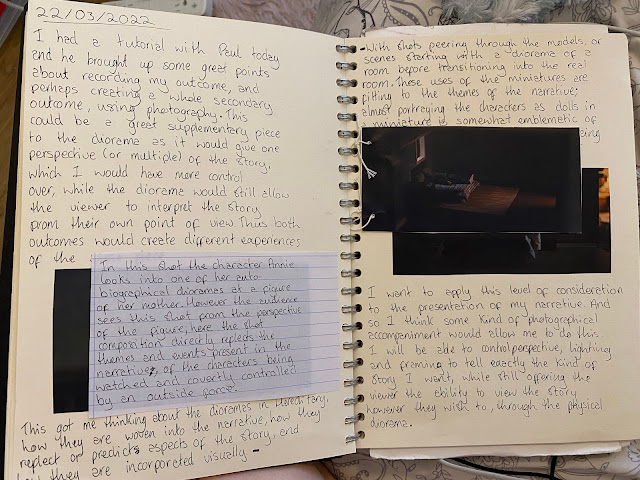 22/03/2022
I had a tutorial with Paul today
and he brought up some great points
about recording my outcome, and
perhaps creating a whole secondary
outcome, using photography. This
could be a great supplementary piece
to the diorama as it would give one
perspective (or multiple) of the story,
which I would have more control
over, while the diorama would still allow
the viewer to interpret the story
from their own point of view. Thus both
outcomes would create different experiences
of the
In this shot the character Annie
looks into one of her auto-
biographical dioramas at a figure
of her mother. However the audience
sees this shot from the perspective
of the figure, here the shot
composition directly reflects the
themes and events present in the
narrative, of the characters being
watched and covertly controlled
by an outside force.
This got me thinking about the dioramas in Hereditary,
how they are woven into the narrative, how they
reflect or predict aspects of the story, and
how they are incorporated visually -
- With shots peering through the models, or
scenes starting with a diorama of a
room before transitioning into the real
room. These uses of the miniatures are
fitting to the themes of the narrative;
almost portraying the characters as dolls in
a miniature is somewhat emblematic of
being
I want to apply this level of consideration
to the presentation of my narrative. And
so I think some kind of photographical
accompaniment would allow me to do this.
I will be able to control perspective, lighting
and framing to tell exactly the kind of
story I want, while still offering the
viewer the ability to view the story
however they wish to, through the physical
diorama.